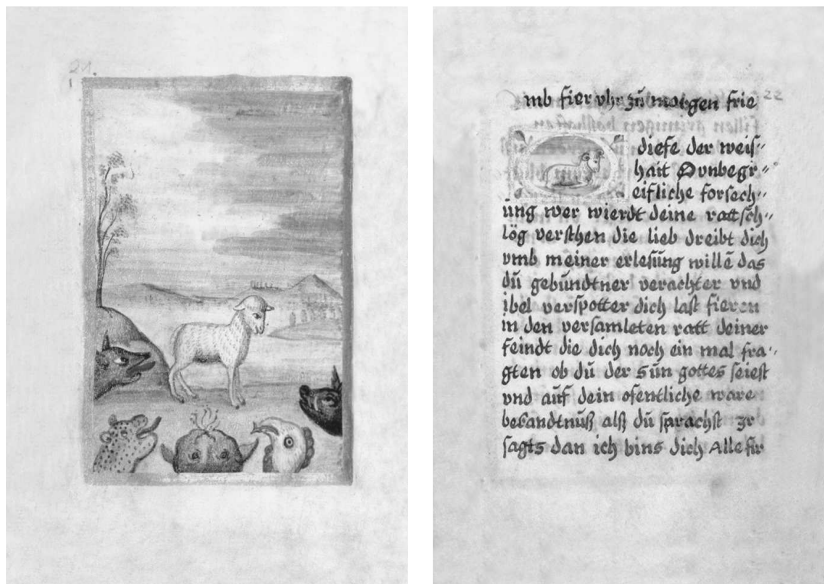 21.
22
vmb fier vhr zu morgen frie
diefe der weis-
hait O vnbegr-
eifliche forsech-
ung wer wierdt deine rattsch-
lög verstehen die lieb dreibt dich
vmb meiner erlesung willē das
dü gebündtner verachter vnd
ibel verspotter dich last fieren
in den versamleten ratt deiner
feindt die dich noch ein mal fra-
gten ob dü der sün gottes seiest
vnd auf dein ofentliche ware
bekandtnüß alß dü sprachst ir
sagts dan ich bins dich Alle fir